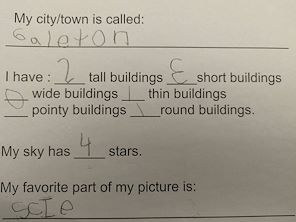 My city/town is called:
Galeton
I have : 2 tall buildings 3 short buildings
0 wide buildings 1 thin buildings
pointy buildings 1 round buildings.
My sky has 4 stars.
My favorite part of my picture is:
scIe